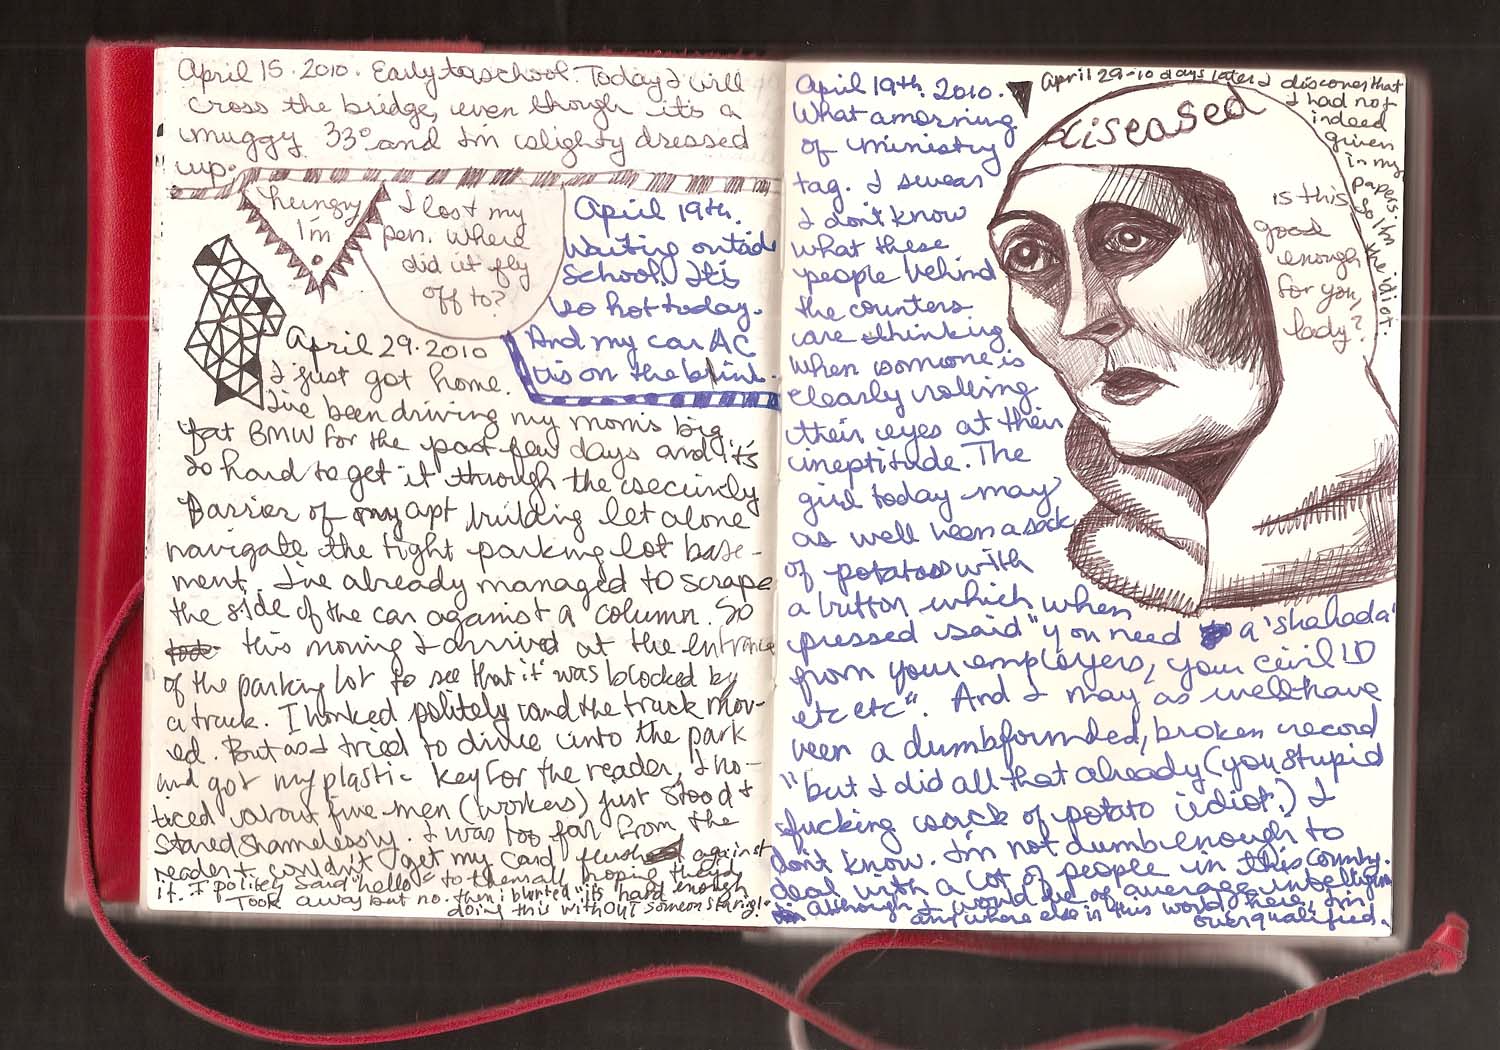 April 15. 2010. Early to school. Today I will
cross the bridge, even though it's a
muggy 33° and I'm slightly dressed
up.
hungry
I'm
I lost my
pen. Where
did it fly
off to?
April 19th.
Waiting outside
School. It's
so hot today.
And my car AC
is on the blink.
April 29. 2010
I just got home.
I've been driving my mom's big
fat BMW for the past few days and it's
so hard to get it through the security
Barrier of my apt building let alone
navigate the tight parking lot base-
ment. I've already managed to scrape
the side of the car against a column. So
this morning I arrived at the entrance
of the parking lot to see that it was blocked by
a truck. I honked politely and the truck mov-
ed. But as I tried to drive into the park
and got my plastic key for the reader, I no-
ticed about five men (workers) just stood &
stared shamelessly. I was too far from the
reader & couldn't get my card flush against
it. I politely said "hello" to them all hoping they'd
look away but no. then i blurted "it's hard enough
doing this without someone staring!"
April 19th. 2010.
What a morning
of ministry
tag. I swear
I don't know
what these
people behind
the counters
are thinking
when someone is
clearly rolling
their eyes at their
ineptitude. The
girl today may
as well been a sack
of potatoes with
a button which when
pressed said "you need a 'shahada'
from your employers, your civil ID
etc etc". And I may as well have
been a dumbfounded, broken record
"but I did all that already (you stupid
fucking sack of potato idiot.) I
don't know. I'm not dumb enough to
deal with a lot of people in this country.
although I would be of average intelligence
anywhere else in this world, here, I'm
overqualified.
April 29 - 10 days later I discover that
I had not
indeed
given
in my
papers.
So I'm
the idiot.
diseased
is this
good
enough
for you,
lady?